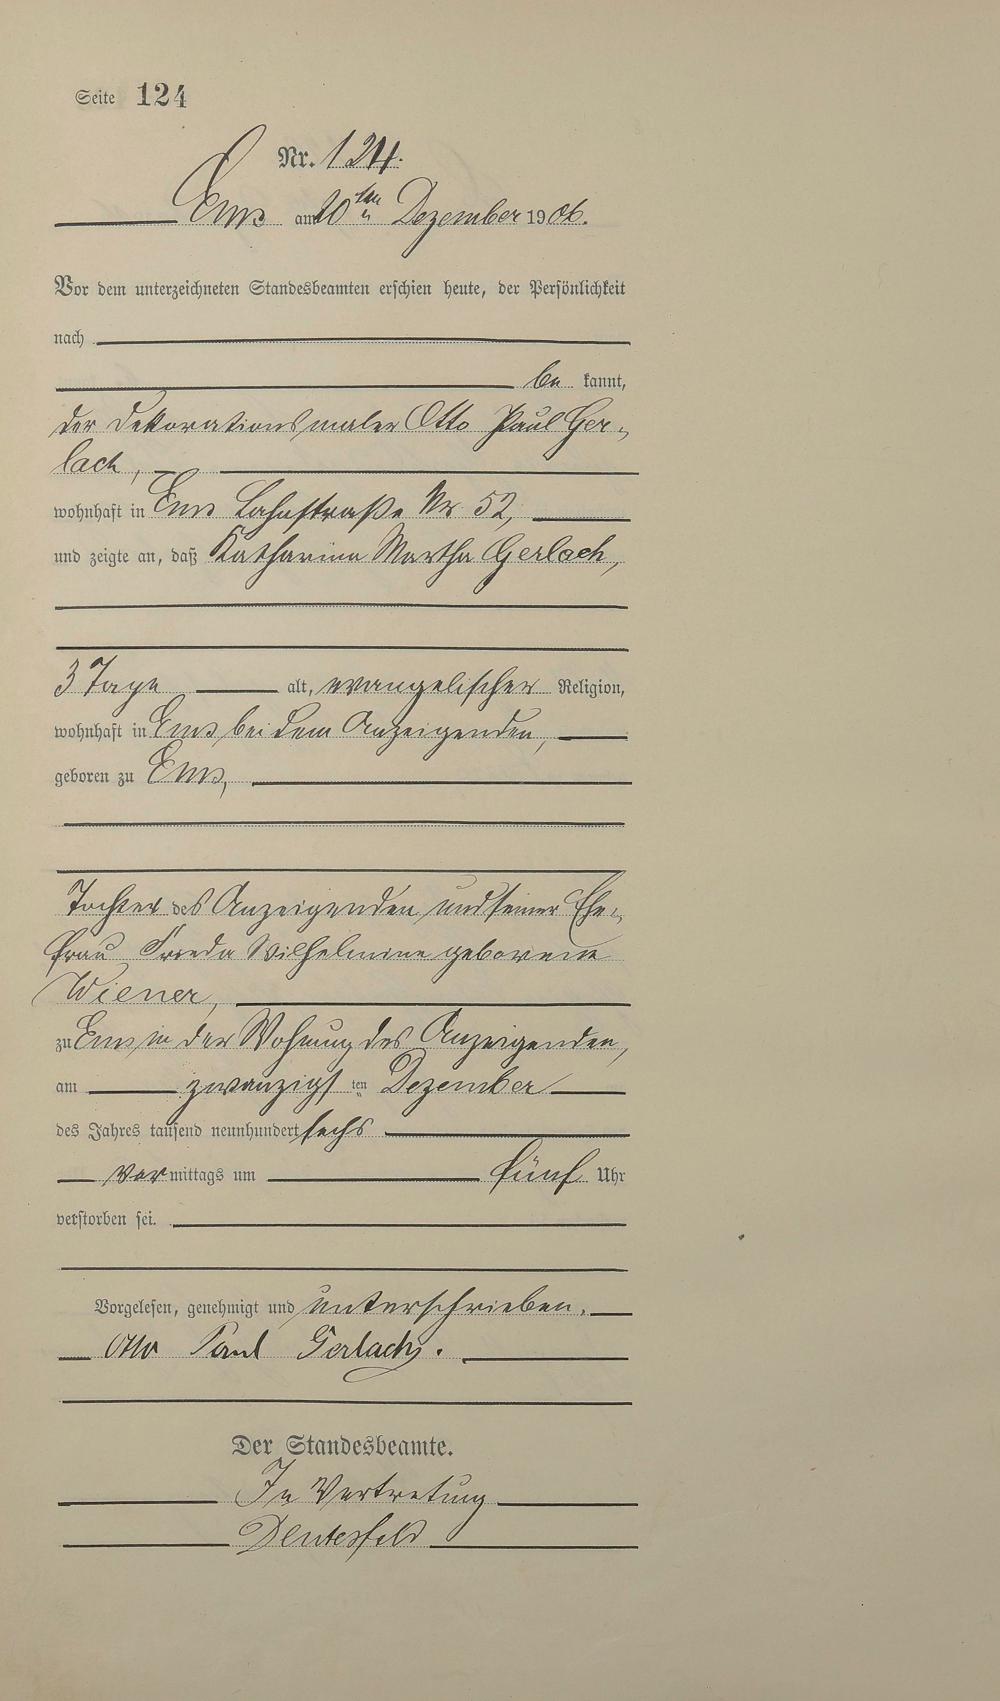 Seite 124
Nr. 124.
Ems am 20ten Dezember 1906.
Vor dem unterzeichneten Standesbeamten erschien heute, der Persönlichkeit
nach
be kannt,
der Dekorationsmaler Otto Paul Ger-
lach,
wohnhaft in Ems Lahnstraße Nr 52,
und zeigte an, daß Katharina Martha Gerlach,
3 Tage alt, evangelischer Religion,
wohnhaft in Ems bei dem Anzeigenden,
geboren zu Ems,
Tochter des Anzeigenden und seiner Ehe-
frau Frieda Wilhelmine geborene
Wiener,
zu Ems in der Wohnung des Anzeigenden,
am zwanzigsten Dezember
des Jahres tausend neunhundert sechs
vor mittags um fünf Uhr
verstorben sei.
Vorgelesen, genehmigt und unterschrieben.
Otto Paul Gerlach.
Der Standesbeamte.
In Vertretung